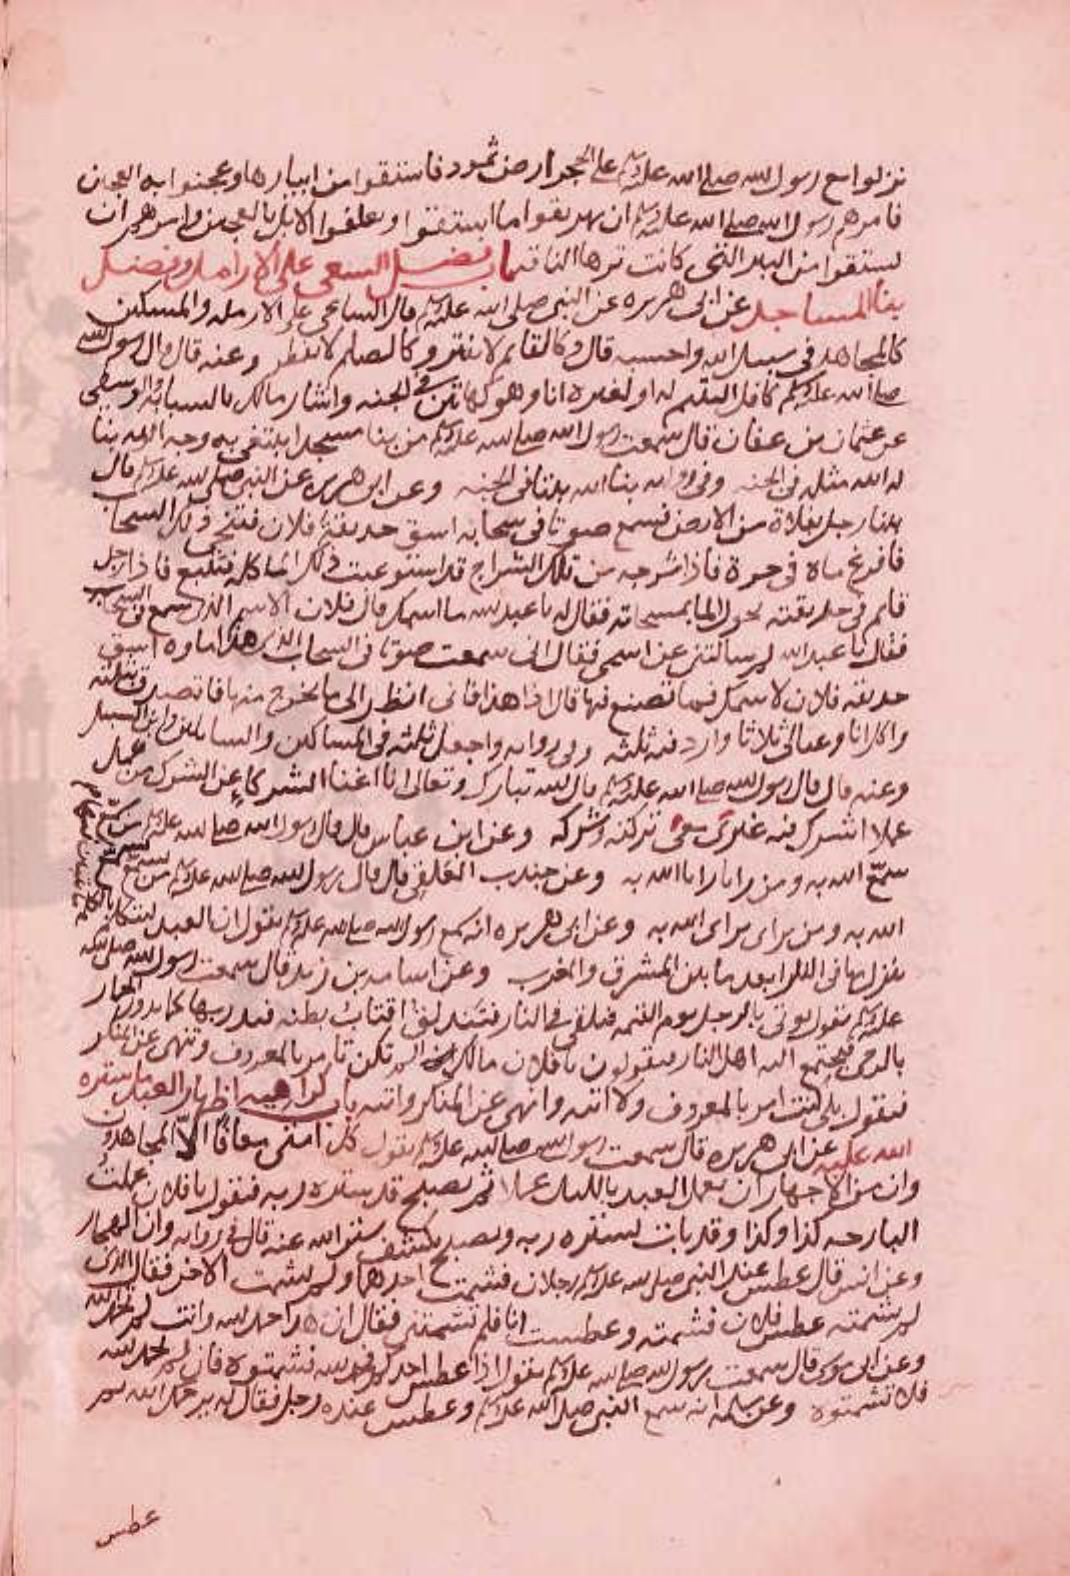 نزلوا مع رسول الله صلى الله عليه وسلم على الحجر ارض ثمود فاستقوا من ابيارها وعجنوا به العجين
فامرهم رسول الله صلى الله عليه وسلم ان يهريقوا ما استقوا ويعلفوا الابل العجين وامرهم ان
يستقوا من البير التي كانت تردها الناقة باب فضل السعي على الارامل وفضل
بنا المساجد عن ابي هريره عن النبي صلى الله عليه وسلم قال الساعي على الارمله والمسكين
كالمجاهد في سبيل الله واحسبه قال وكالقايم لا يفتر وكالصايم لا يفطر وعنه قال قال رسول الله
صلى الله عليه وسلم كافل اليتيم له او لغيره انا وهو كهاتين في الجنه واشار مالك بالسبابه والوسطى
عن عثمان بن عفان قال سمعت رسول الله صلى الله عليه وسلم من بنا مسجدا يبتغي به وجه الله بنا
له الله مثله في الجنه وفي روايه بنا الله بيتا في الجنه وعن ابي هريره عن النبي صلى الله عليه وسلم قال
بينا رجل بفلاة من الارض فسمع صوتا في سحابه اسق حديقة فلان فتنحى ذلك السحاب
فافرغ ماه في حرة فاذا شرجه من تلك الشراج قد استوعبت ذلك الما كله فتتبع فاذا رجل
قايم في حديقته يحول الما بمسحاته فقال له يا عبد الله ما اسمك قال فلان الاسم الذي سمع في السحاب
فقال يا عبد الله لم سالتني عن اسمي فقال اني سمعت صوتا في السحاب الذي هذا ماوه اسق
حديقه فلان لاسمك فما تصنع فيها قال اذا هذا فاني انظر الى ما يخرج منها فاتصدق بثلثه
واكل انا وعيالي ثلاثا وارد فيه ثلثه وفي روايه واجعل ثلثه في المساكين والسايلين وابن السبيل
وعنه قال قال رسول الله صلى الله عليه وسلم قال الله تبارك وتعالى انا اغنا الشركاء عن الشرك من عمل
عملا اشرك فيه غيري معي تركته وشركه وعن ابن عباس قال قال رسول الله صلى الله عليه وسلم من سمّع
سمّع الله به ومن رايا رايا الله به وعن جندب العلقي قال قال رسول الله صلى الله عليه وسلم من سمّع يسمّع
الله به ومن يراي يراي الله به وعن ابي هريره انه سمع رسول الله صلى الله عليه وسلم يقول ان العبد ليتكلم بالكلمة
ينزل بها في النار ابعد ما بين المشرق والمغرب وعن اسامه بن زيد قال سمعت رسول الله صلى الله
عليه وسلم يقول يوتى بالرجل يوم القيمه فيلقى في النار فتندلق اقتاب بطنه فيدور بها كما يدور الحمار
بالرحى فيجتمع اليه اهل النار فيقولون يا فلان مالك الم تكن تامر بالمعروف وتنهى عن المنكر
فيقول بلى كنت امر بالمعروف ولا اتيه وانهى عن المنكر واتيه باب كراهيه اظهار العبد ما ستره
الله عليه عن ابي هريره قال سمعت رسول الله صلى الله عليه وسلم يقول كل امتي معافا الا المجاهرون
وان من الاجهار ان يعمل العبد بالليل عملا ثم يصبح قد ستره ربه فيقول يا فلان عملت
البارحه كذا وكذا وقد بات يستره ربه ويصبح يكشف ستر الله عنه قال وفي روايه وان الهجار
وعن انس قال عطس عند النبي صلى الله عليه وسلم رجلان فشمت احدهما ولم يشمت الاخر فقال الذي
لم يشمته عطس فلان فشمته وعطست انا فلم تشمتني فقال ان هذا حمد الله وانت لم تحمد الله
وعن ابي موسى قال سمعت رسول الله صلى الله عليه وسلم يقول اذا عطس احدكم فحمد الله فشمتوه فان لم يحمد الله
فلا تشمتوه وعن سلمه انه سمع النبي صلى الله عليه وسلم وعطس عنده رجل فقال له يرحمك الله ثم
عطس